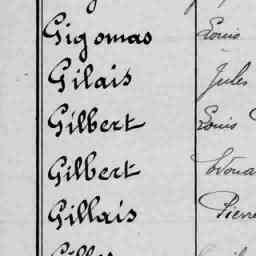 Gigomas Louis
Gilais Jules
Gilbert Louis
Gilbert Edoua
Gillais Pierre